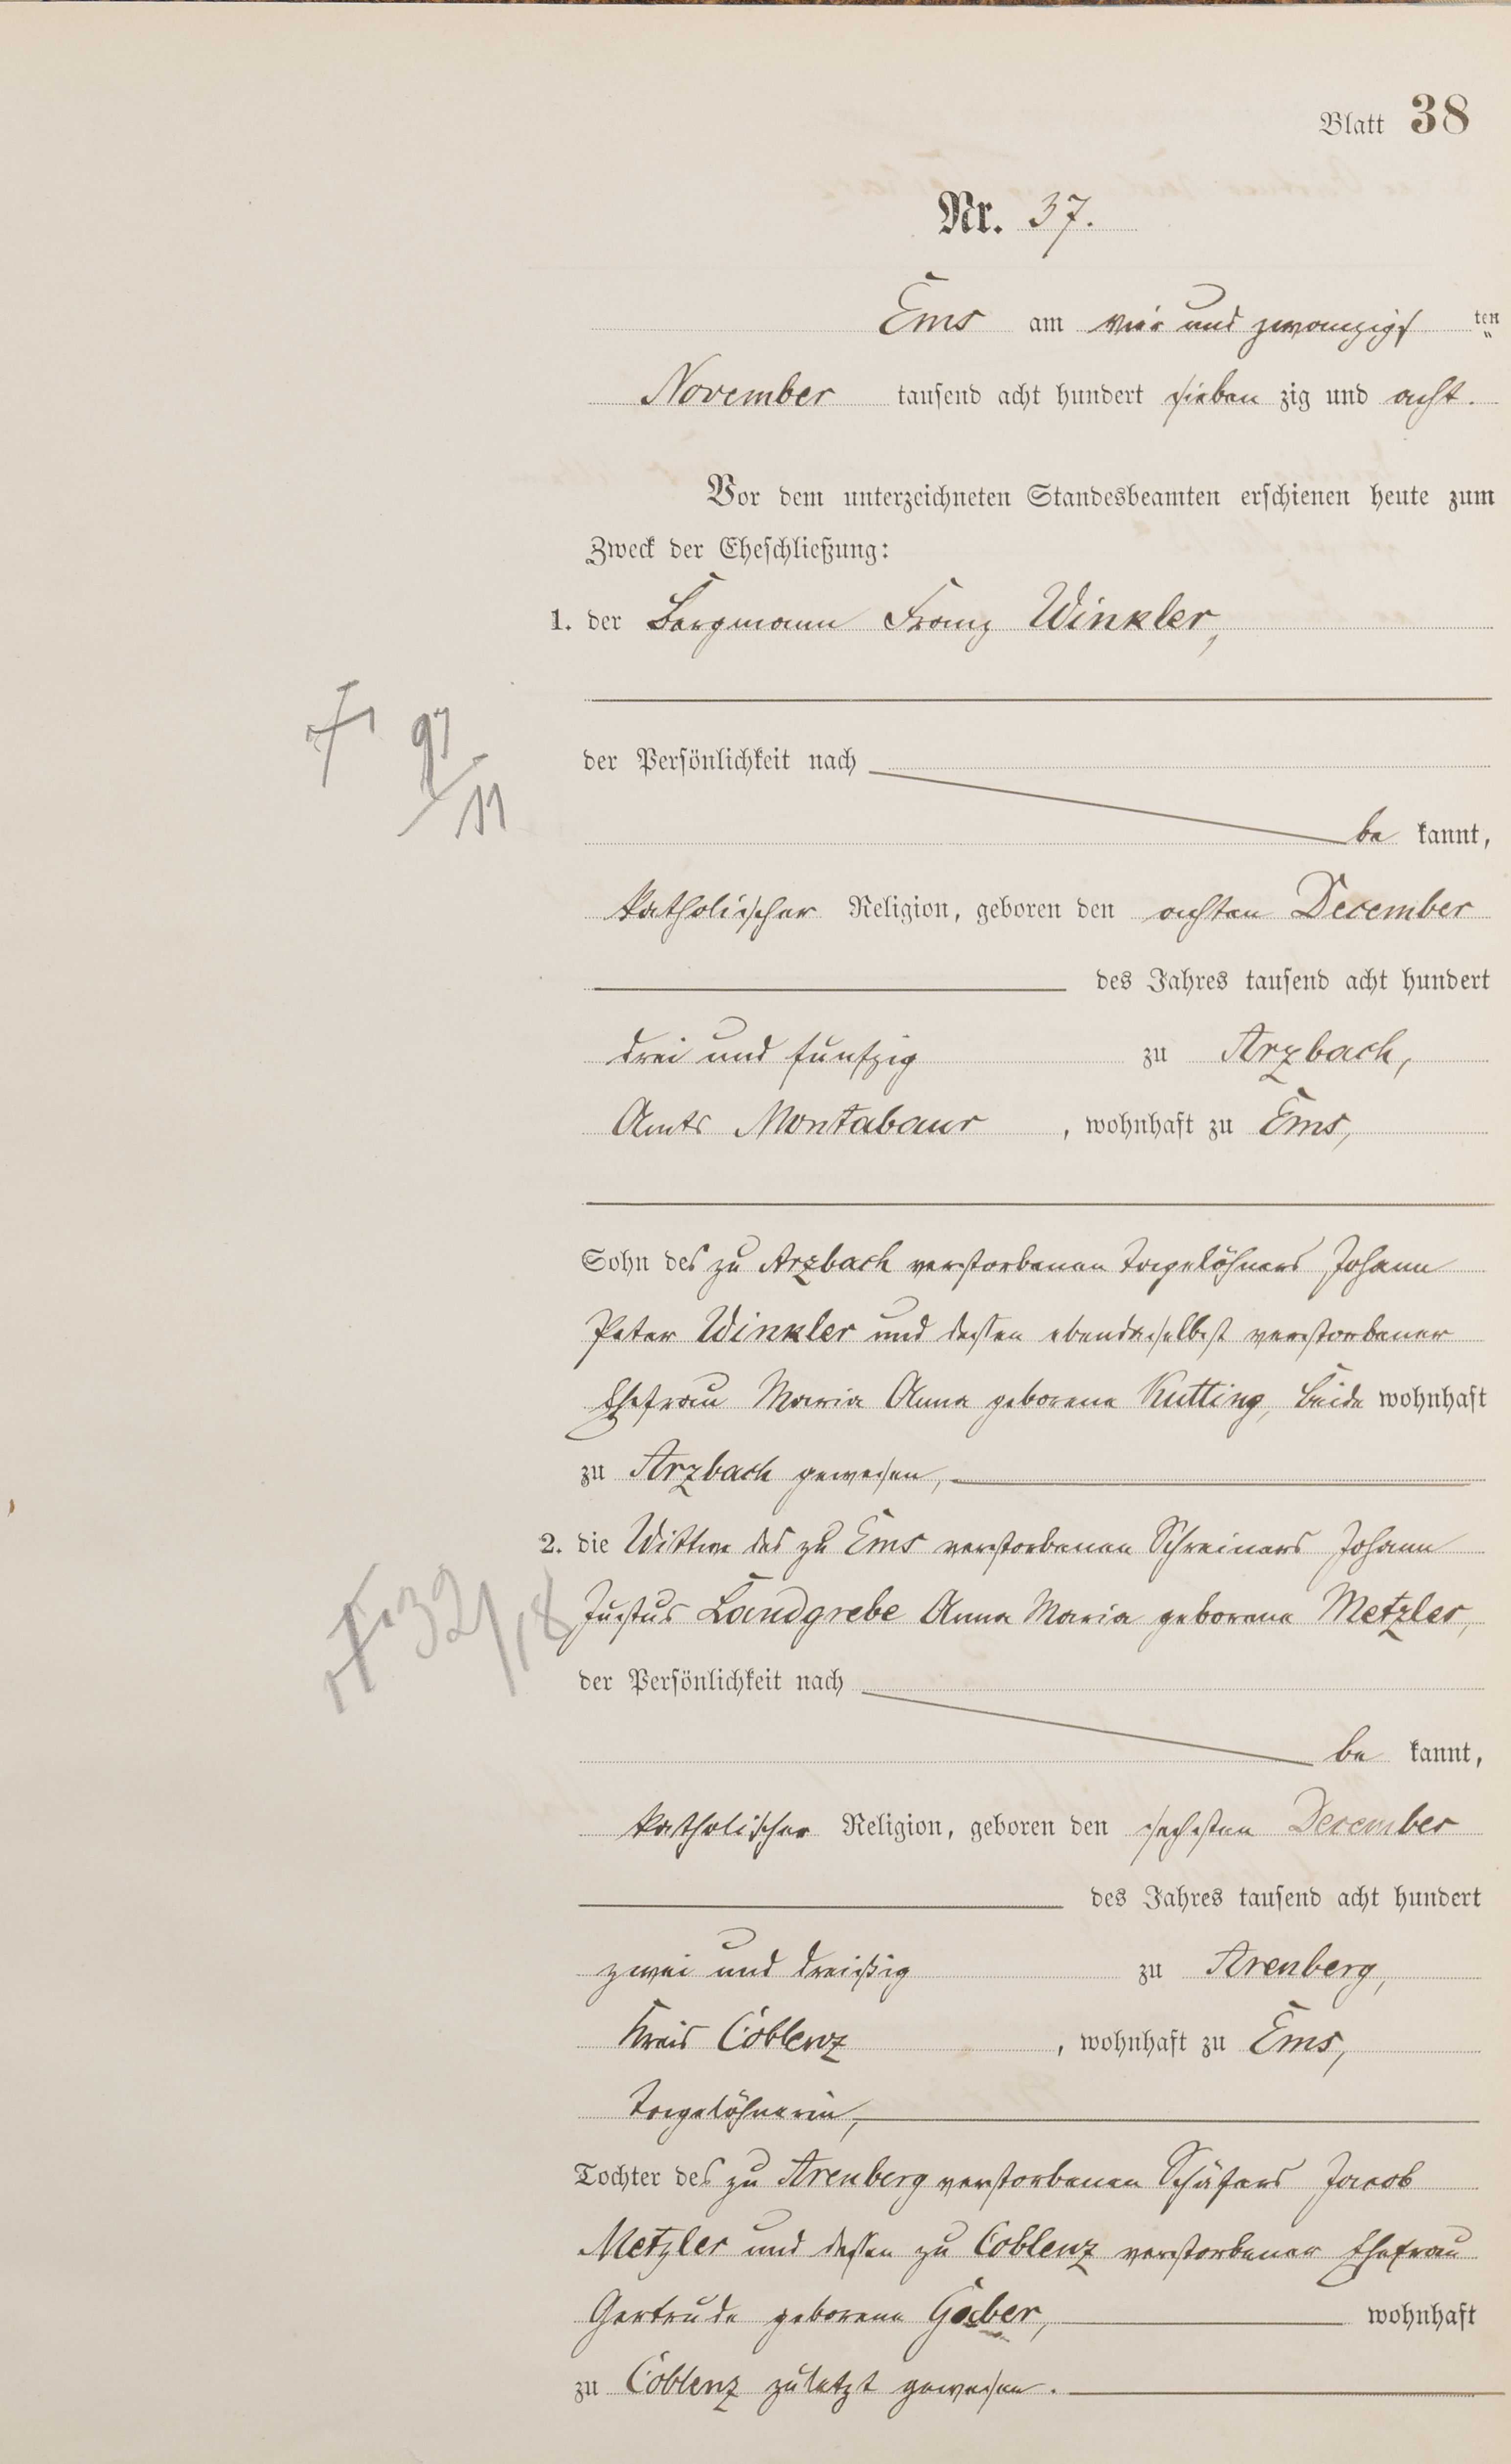 Blatt 38
Nr. 37.
Ems am vier und zwanzigs ten
November tausend acht hundert sieben zig und acht.
Vor dem unterzeichneten Standesbeamten erschienen heute zum
Zweck der Eheschließung:
1. der Bergmann Franz Winkler,
der Persönlichkeit nach
be kannt,
katholischer Religion, geboren den achten December
des Jahres tausend acht hundert
drei und funfzig zu Arzbach,
Amts Montabaur , wohnhaft zu Ems,
Sohn des zu Arzbach verstorbenen Tagelöhners Johann
Peter Winkler und dessen ebendaselbst verstorbener
Ehefrau Maria Anna geborene Kutting, beide wohnhaft
zu Arzbach gewesen,
2. die Wittwe des zu Ems verstorbenen Schreiners Johann
Justus Landgrebe Anna Maria geborene Metzler,
der Persönlichkeit nach
be kannt,
katholischer Religion, geboren den sechsten December
des Jahres tausend acht hundert
zwei und dreißig zu Arenberg,
Kreis Coblenz , wohnhaft zu Ems,
Tagelöhnerin,
Tochter des zu Arenberg verstorbenen Schäfers Jacob
Metzler und dessen zu Coblenz verstorbener Ehefrau
Gertrude geborene wohnhaft
zu Coblenz zuletzt gewesen.
† 97/11
† 32/18